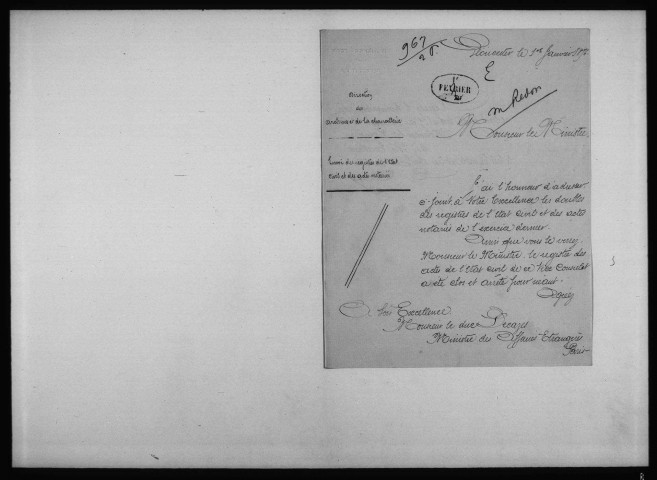 967
Gloucester le 1er Janvier
E
FÉVRIER
m Redon
Direction
des
archives et de la chancellerie
Monsieur le Ministre,
Envoi des registres de l'Etat
civil et des actes notariés
J'ai l'honneur d'adresser
ci-joint, à Votre Excellence les doubles
des registres de l'Etat civil et des actes
notariés de l'exercice dernier.
Ainsi que vous le verrez,
Monsieur le Ministre, le registre des
actes de l'Etat civil de ce Vice Consulat
a été clos et arrêté pour néant.
Agréez
A Son Excellence
Monsieur le duc Decazes
Ministre des Affaires Etrangères
Paris